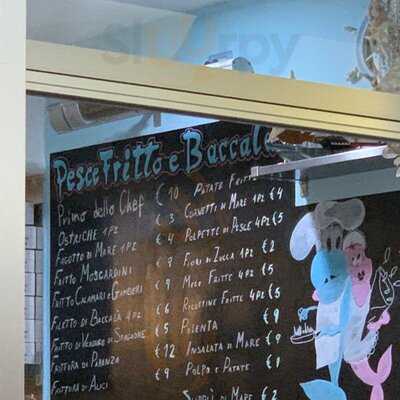 Pesce Fritto e Baccalà
Primo dello Chef € 10
Ostriche 1 pz € 3
Fagotto di Mare 1 pz € 4
Fritto Moscardini € 7
Fritto Calamari e Gamberi € 9
Filetto di Baccalà 4 pz € 6
Fritto di Verdure di Stagione € 5
Frittura di Paranza € 12
Frittura di Alici € 9
Patate Fritte
Cornetti di Mare 1 pz € 4
Polpette di Pesce 4 pz € 5
Fiori di Zucca 1 pz € 2
Melo Fritte 4 pz € 5
Ricottine Fritte 4 pz € 5
Polenta
Insalata di Mare € 9
Polpo e Patate € 9
Supplì di Mare € 2